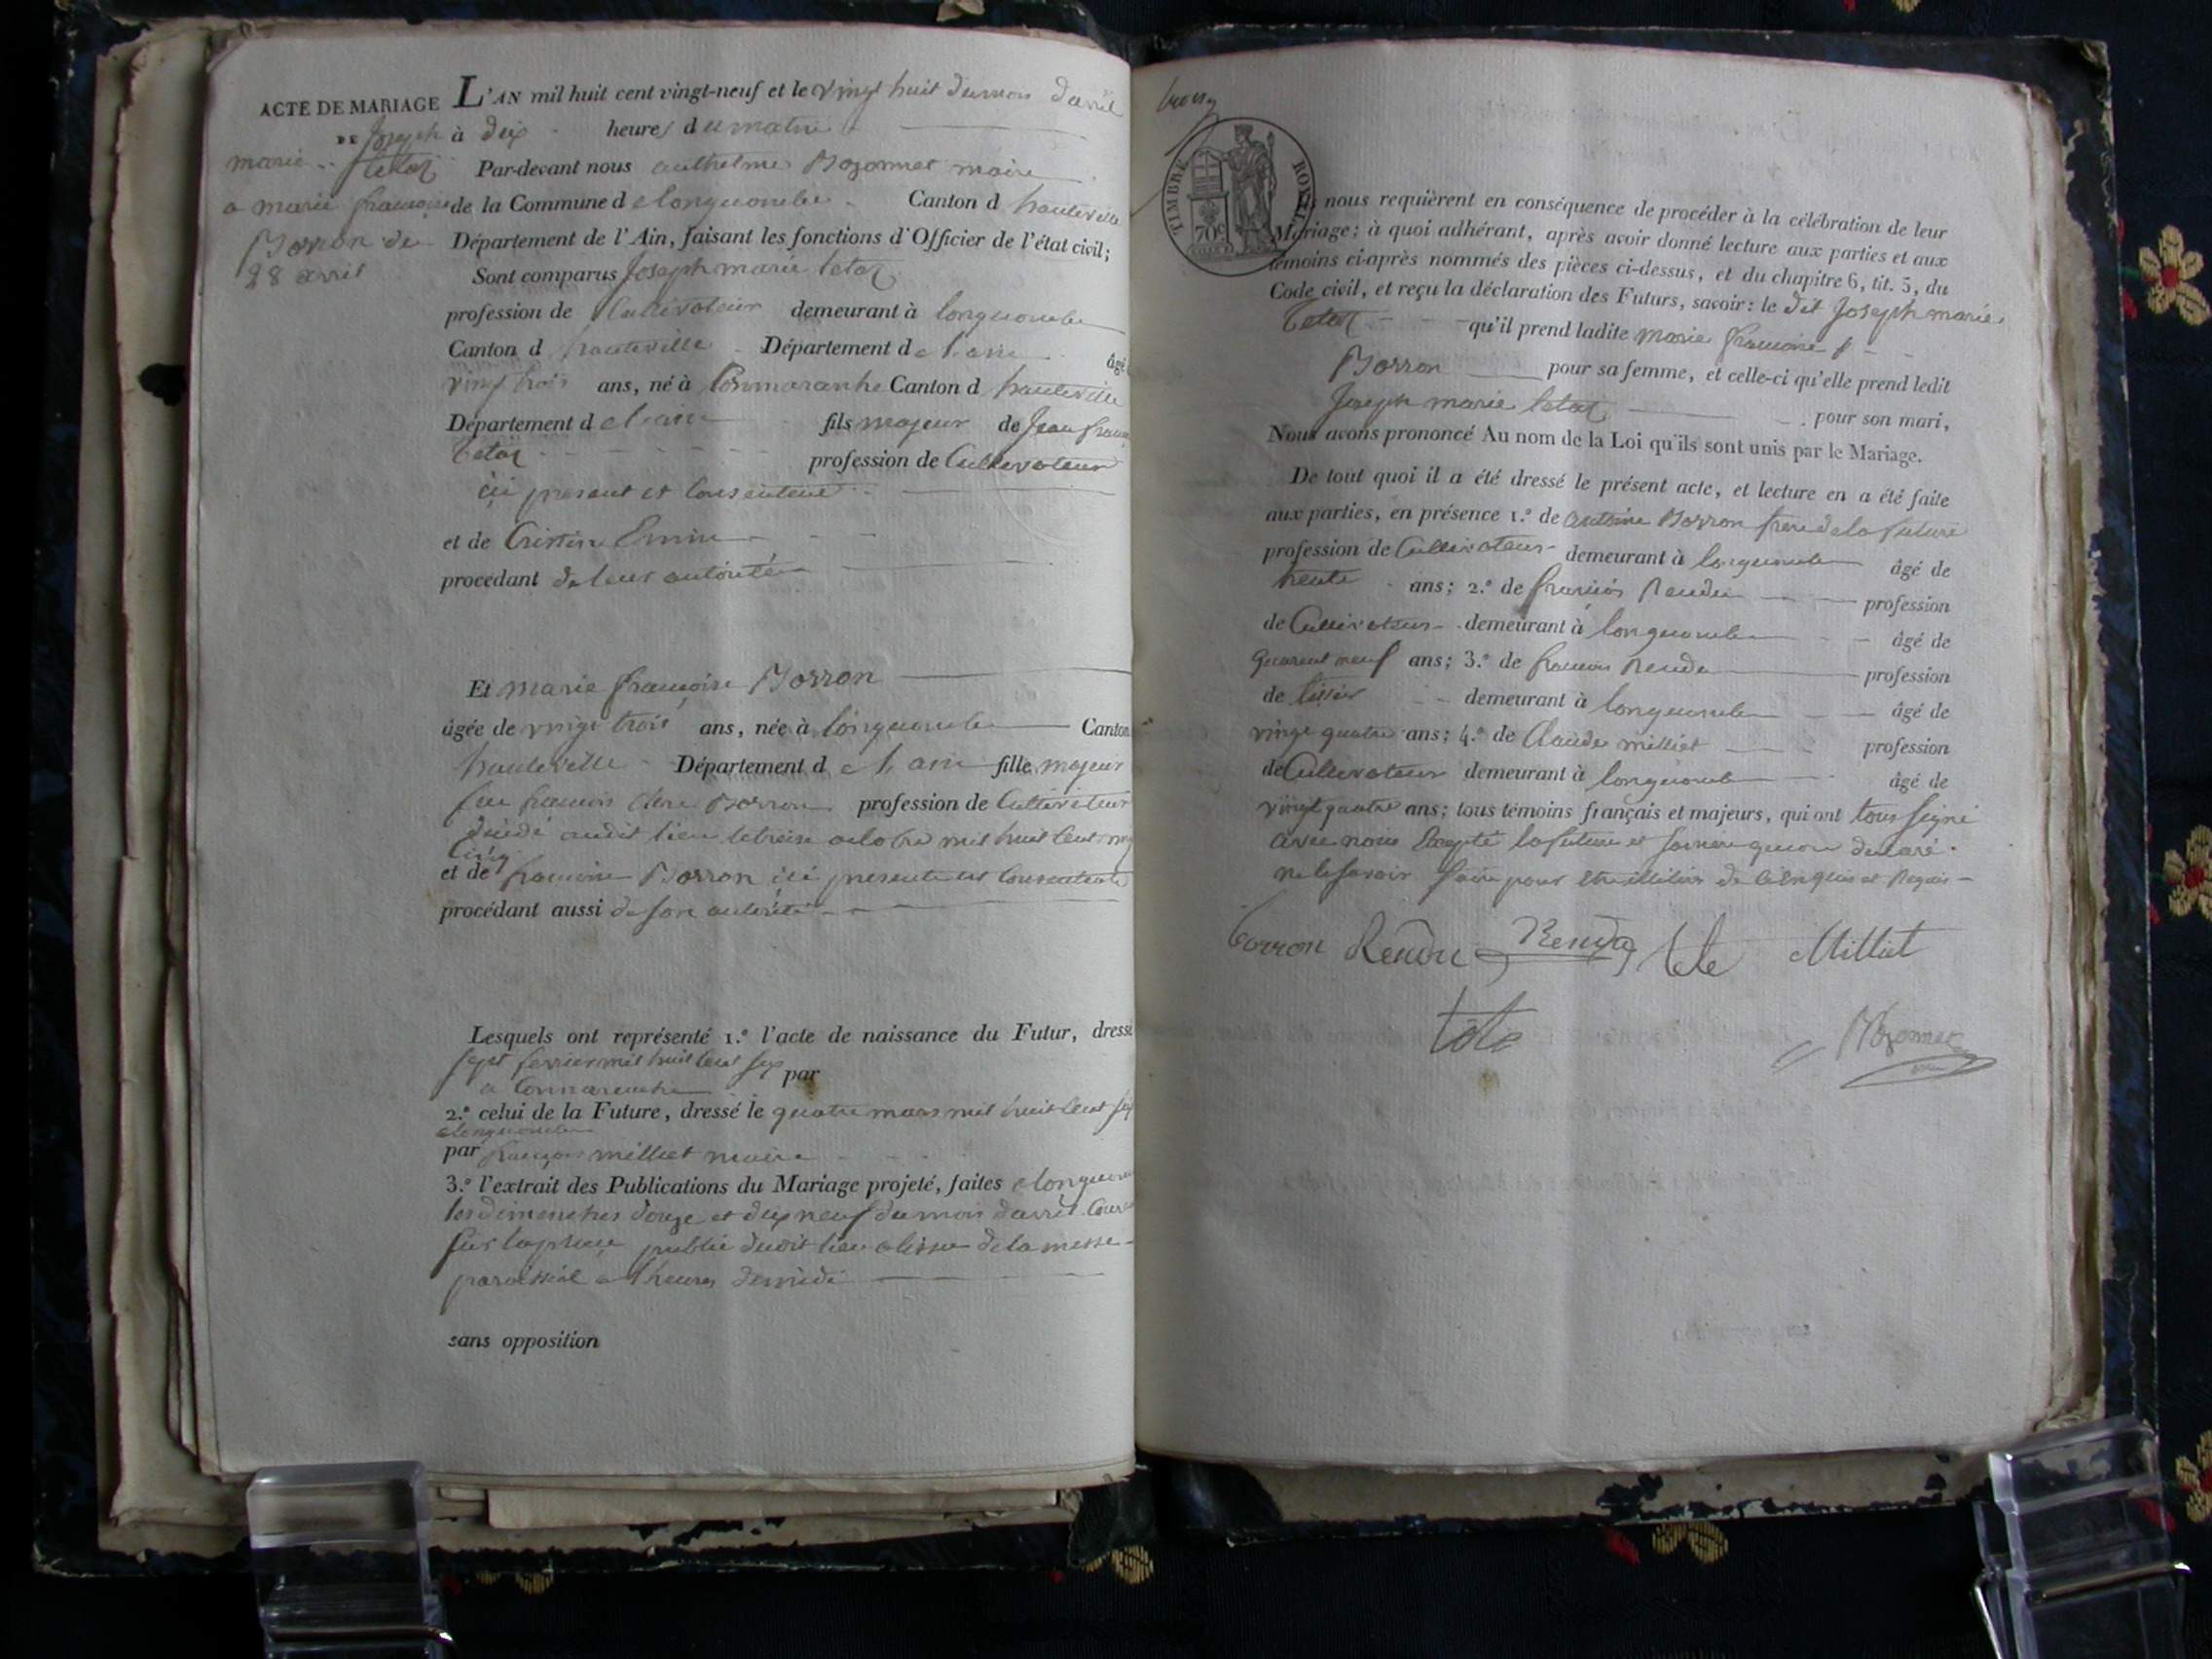 ACTE DE MARIAGE
DE Joseph
marie tetaz
a marie francoise
Borron de
28 avril
L'AN mil huit cent vingt-neuf et le vingt huit du mois davril
à dix heures du matin
Par-devant nous anthelme Bozonnet maire
de la Commune de longuombe Canton d hauteville
Département de l'Ain, faisant les fonctions d'Officier de l'état civil;
Sont comparus Joseph marie tetaz
profession de Cultivateur demeurant à longuombe
Canton d hauteville Département de l ain âgé
vingt trois ans, né à Cormaranhe Canton d hauteville
Département de l ain fils majeur de Jean francois
tetaz profession de Cultivateur
ici present et Consentent
et de Cristine
procédant de leur autorité
Et marie francoise Borron
âgée de vingt trois ans, née à longuombe Canton
hauteville Département de l ain fille majeur
feu francois Borron profession de Cultivateur
audit lieu le treize octobre mil huit Cent vingt
Cinq
et de francoise Borron ici presente et Consentente
procédant aussi de son autorité
Lesquels ont représenté 1.º l'acte de naissance du Futur, dressé
sept fevrier mil huit Cent six par
a Cormaranhe
2.º celui de la Future, dressé le quatre mars mil huit Cent six
a longuombe
par françois milliet maire
3.º l'extrait des Publications du Mariage projeté, faites a longuombe
les dimenches douze et dix neuf du mois davril
sur la place public dudit lieu a lissue de la messe
paroissial a heures de midi
sans opposition
TIMBRE ROYAL
70c
Et nous requièrent en conséquence de procéder à la célébration de leur
Mariage; à quoi adhérant, après avoir donné lecture aux parties et aux
témoins ci-après nommés des pièces ci-dessus, et du chapitre 6, tit. 5, du
Code civil, et reçu la déclaration des Futurs, savoir: le dit Joseph marie
tetaz qu'il prend ladite marie francoise
Borron pour sa femme, et celle-ci qu'elle prend ledit
Joseph marie tetaz pour son mari,
Nous avons prononcé Au nom de la Loi qu'ils sont unis par le Mariage.
De tout quoi il a été dressé le présent acte, et lecture en a été faite
aux parties, en présence 1.º de antoine Borron frere de la future
profession de Cultivateur demeurant à longuombe âgé de
trente ans; 2.º de francois Rendu profession
de Cultivateur demeurant à longuombe âgé de
quarent neuf ans; 3.º de francois Rendu profession
de tissier demeurant à longuombe âgé de
vingt quatre ans; 4.º de Claude milliet profession
de Cultivateur demeurant à longuombe âgé de
vingt quatre ans; tous témoins français et majeurs, qui ont tous signé
avec nous Excepté la future et sa mere qui ont declaré
ne le savoir faire pour etre illitéré de Ce enquis et Requis
borron Rendu Rendu tete Milliet
tete Bozonnet